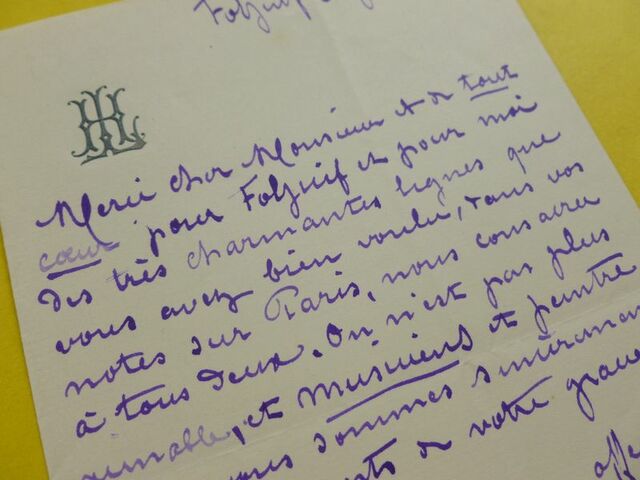 HL
Merci cher Monsieur et de tout
cœur pour Folzuif et pour moi
des très charmantes lignes que
vous avez bien voulu, dans vos
notes sur Paris, nous consacrer
à tous deux. On n'est pas plus
aimable, et musiciens et peintre
nous sommes sincèrement
de votre